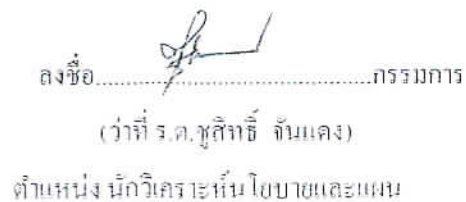 ลงชื่อ...............................................กรรมการ
(ว่าที่ ร.ต.ชูสิทธิ์ จันแดง)
ตำแหน่ง นักวิเคราะห์นโยบายและแผน